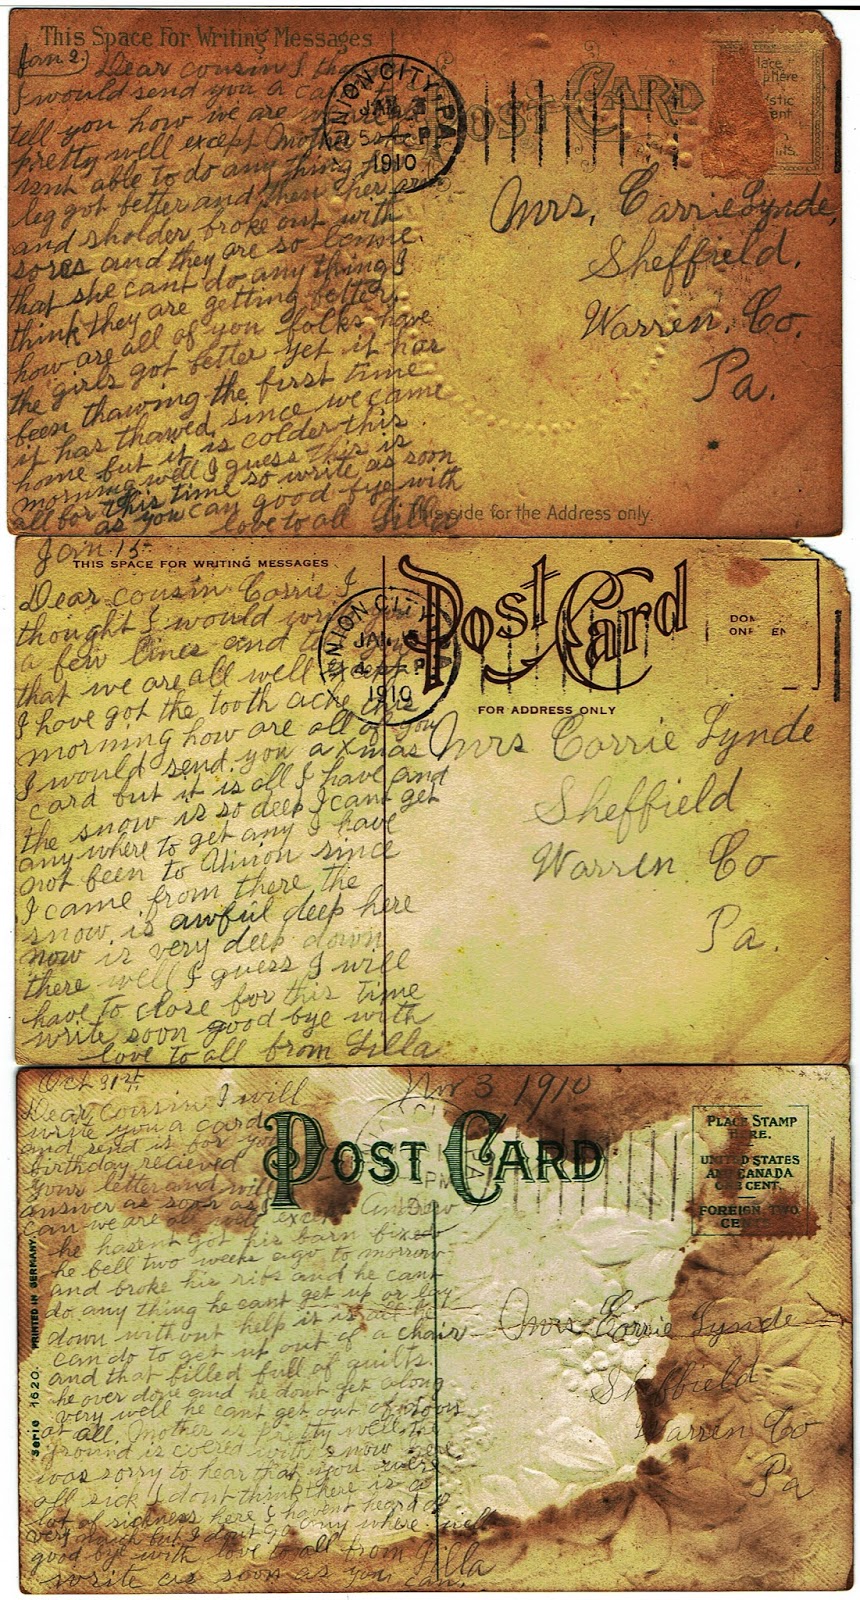 This Space For Writing Messages
Jan 2.
Dear cousin I
I would send you a
tell you how we are
pretty well except Mother she
isnt able to do any thing
leg got better and then her arm
and sholder broke out with
sores and they are so
that she cant do any thing I
think they are getting better
how are all of you folks have
the girls got better yet it has
been thawing the first time
it has thawed since we came
home but it is colder this
morning well I guess this is
all for this time so write as soon
as you can good bye with
love to all Lilla
Post Card
UNION CITY, PA
JAN 3
1910
Mrs, Carrie Lynde,
Sheffield,
Warren, Co.
Pa.
This side for the Address only.
Jan 15
THIS SPACE FOR WRITING MESSAGES
Dear cousin Carrie I
thought I would
a few lines and
that we are all well except
I have got the tooth ache this
morning how are all of you
I would send you a Xmas
card but it is all I have and
the snow is so deep I cant get
any where to get any I have
not been to Union since
I came from there the
snow is awful deep here
now is very deep down
there well I guess I will
have to close for this time
write soon good bye with
love to all from Lilla
Post Card
UNION CITY
JAN
1910
FOR ADDRESS ONLY
Mrs Carrie Lynde
Sheffield
Warren Co
Pa.
Oct 31st
Nov 3 1910
Dear Cousin I will
write you a card
and send it for you
birthday recieved
your letter and will
answer as soon as I
can we are all well except Andrew
he hasent got his barn fixed
he fell two weeks ago to morrow
and broke his ribs and he cant
do any thing he cant get up or lay
down without help it is all he
can do to get up out of a chair
and that filled full of quilts.
he over done and he dont get along
very well he cant get out of doors
at all. Mother is pretty well the
ground is covered with snow here
was sorry to hear that you were
all sick I dont think there is a
lot of sickness here I havent heard of
very much but I dont go any where well
good bye with love to all from Lilla
write as soon as you can.
POST CARD
PLACE STAMP
HERE.
UNITED STATES
AND CANADA
ONE CENT.
FOREIGN TWO
CENTS
Mrs Carrie Lynde
Sheffield
Warren Co
Pa
Serie 1620. PRINTED IN GERMANY.